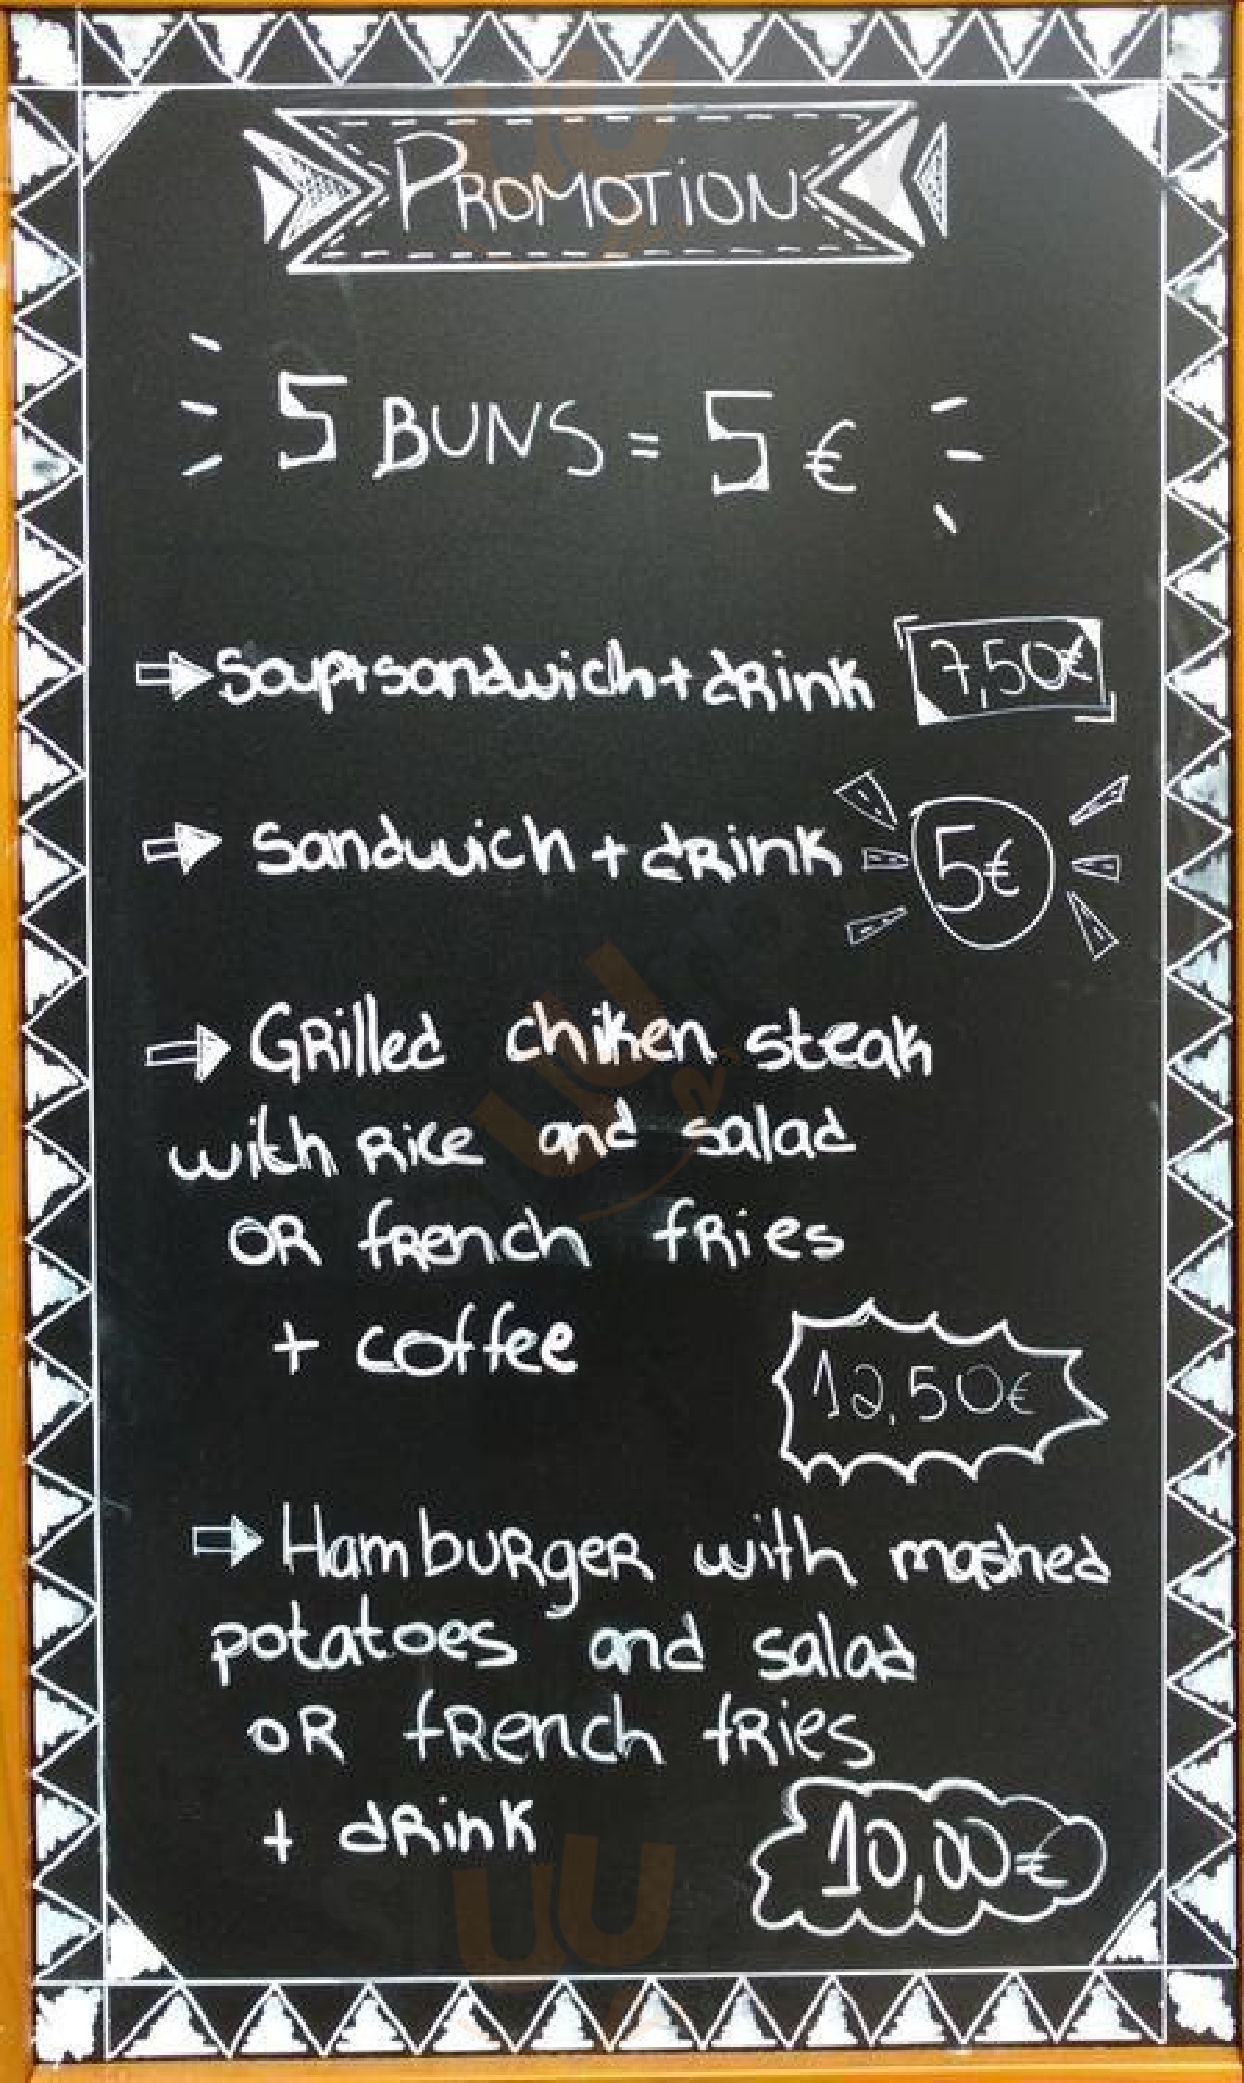 PROMOTION
5 BUNS = 5 €
Soup+sandwich+drink 7,50€
Sandwich + drink 5€
Grilled chiken steak
with rice and salad
OR french fries
+ coffee
12,50€
Hamburger with mashed
potatoes and salad
OR french fries
+ drink
10,00€